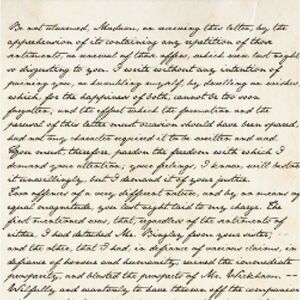 Be not alarmed, Madam, on receiving this letter, by the
apprehension of its containing any repetition of those
sentiments, or renewal of those offers, which were last night
so disgusting to you. I write without any intention of
paining you, or humbling myself, by dwelling on wishes
which, for the happiness of both, cannot be too soon
forgotten, and the effort which the formation and the
perusal of this letter must occasion should have been spared,
had not my character required it to be written and read.
You must, therefore, pardon the freedom with which I
demand your attention; your feelings, I know, will bestow
it unwillingly, but I demand it of your justice.
Two offences of a very different nature, and by no means of
equal magnitude, you last night laid to my charge. The
first mentioned was, that, regardless of the sentiments of
either, I had detached Mr. Bingley from your sister, --
and the other, that I had, in defiance of various claims, in
defiance of honour and humanity, ruined the immediate
prosperity, and blasted the prospects of Mr. Wickham. --
Wilfully and wantonly to have thrown off the companion